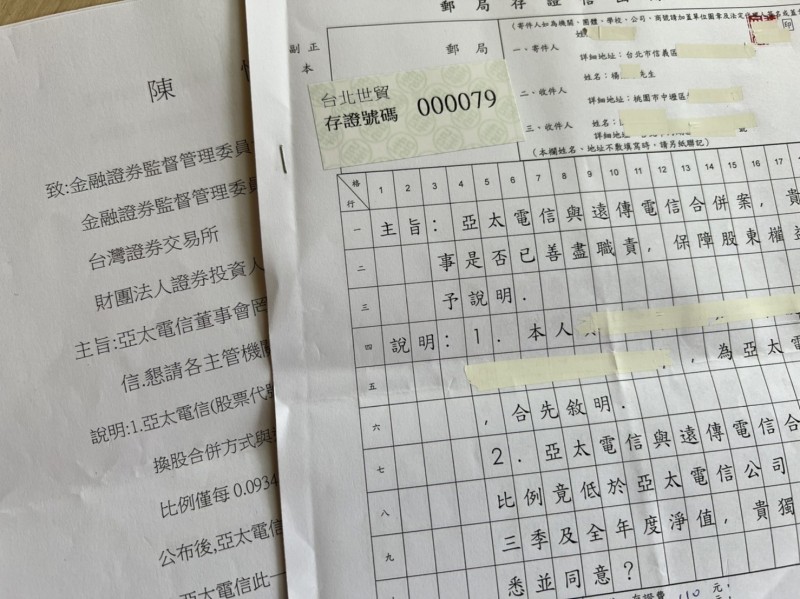 陳
致:金融證券監督管理委員
金融證券監督管理委員
台灣證券交易所
財團法人證券投資人
主旨:亞太電信董事會罔
信.懇請各主管機關
說明:1.亞太電信(股票代號
換股合併方式與
比例僅每 0.0934
公布後,亞太電信
亞太電信此一
郵局存證信
(寄件人如為機關、團體、學校、公司、商號請加蓋單位圖章及法定代理人簽名或蓋
副 正
本
郵 局
台北世貿
存證號碼 000079
姓
印
一、寄件人
詳細地址:台北市信義區
姓名:楊 先生
二、收件人
詳細地址:桃園市中壢區
姓名:
三、收件人
詳細地址: 號
(本欄姓名、地址不敷填寫時,請另紙聯記)
格
行 1 2 3 4 5 6 7 8 9 10 11 12 13 14 15 16 17
一 主旨:亞太電信與遠傳電信合併案,貴
二 事是否已善盡職責,保障股東權益
三 予說明.
四 說明:1.本人
五 ,為亞太電
六 ,合先敘明.
七 2.亞太電信與遠傳電信合
八 比例竟低於亞太電信公司
九 三季及全年度淨值,貴獨
悉並同意?
存證費 110 元;